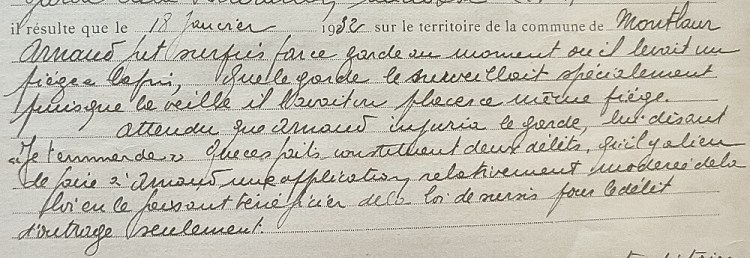 il résulte que le 18 Janvier 1932 sur le territoire de la commune de Montlaur
Arnaud fut surpris par ce garde au moment ou il levait un
piège a lapin, Que le garde le surveillait spécialement
puisque la veille il l'avait vu placer ce même piége.
Attendu que Arnaud injuria le garde, lui disant
"Je t'emmerde" Que ces faits constituent deux délits, qu'il y a lieu
de faire à Arnaud une application relativement modérée de la
loi en le faisant bénéficier de la loi de sursis pour le délit
d'outrage seulement.